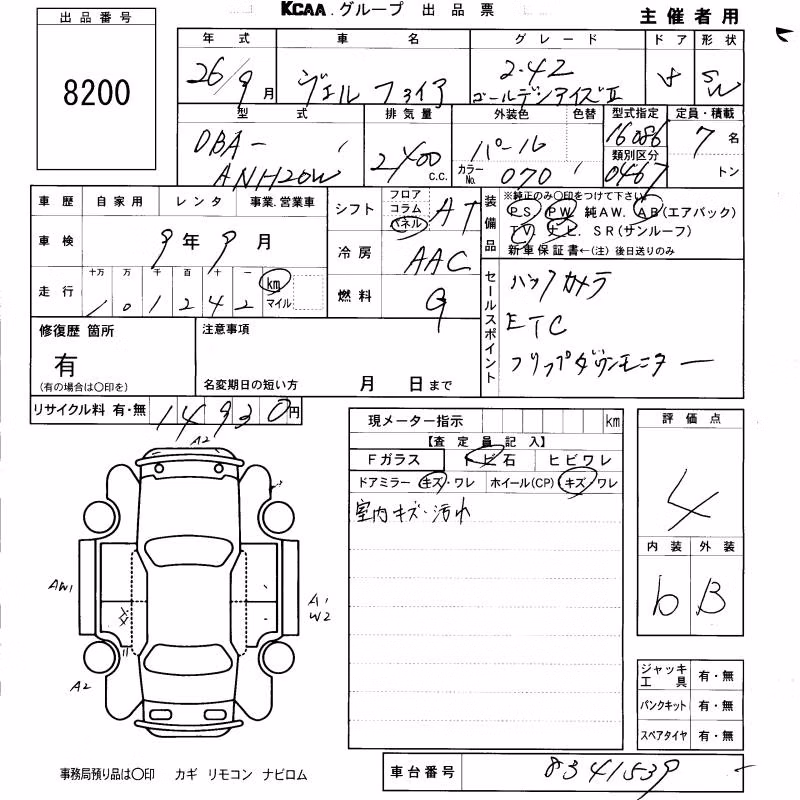 KCAA.グループ 出品票
主催者用
出品番号
8200
年式 車名 グレード ドア 形状
26/9月 ヴェルファイア 2.4Z ゴールデンアイズⅡ 5W
型式 排気量 外装色 色替 型式指定 定員・積載
DBA-ANH20W 2400 c.c. パール 16086 7名
カラーNo. 070 類別区分 0467 トン
車歴 自家用 レンタ 事業.営業車
シフト フロア コラム パネル AT
装備品 ※純正のみ〇印をつけて下さい
PS PW 純AW. AB(エアバック)
TV ナビ. SR(サンルーフ)
新車保証書←(注) 後日送りのみ
車検 9年9月
冷房 AAC
走行 十万 万 千 百 十 一 km マイル
1 0 1 2 4 2
燃料 G
セールスポイント
バックカメラ
ETC
フリップダウンモニター
修復歴 箇所
有
(有の場合は〇印を)
注意事項
名変期日の短い方 月 日まで
リサイクル料 有・無 14930円
現メーター指示 km
【査定員記入】
Fガラス トビ石 ヒビワレ
ドアミラー キズ・ワレ ホイール(CP) キズ/ワレ
室内キズ・汚れ
評価点
4
内装 外装
b B
A2
AW1
A1
W2
A2
ジャッキ工具 有・無
パンクキット 有・無
スペアタイヤ 有・無
事務局預り品は〇印 カギ リモコン ナビロム
車台番号 8341539